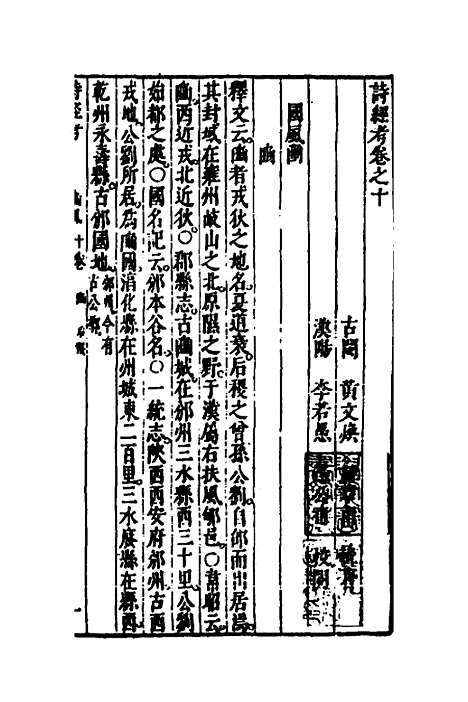 詩經考卷之十
古閩 黃文煥
漢陽 李若愚 校刪
國風豳
豳
釋文云豳者戎狄之地名夏道衰后稷之曾孫公劉自邰而出居焉
其封域在雍州岐山之北原隰之野于漢為右扶風郇邑○韋昭云
豳西近戎北近狄○郡縣志古豳城在邠州三水縣西三十里公劉
始都之處○國名記云邠本谷名○一統志陝西西安府邠州古西
戎地公劉所居為豳國淳化縣在州城東二百里三水廢縣在縣西
乾州永壽縣古邠國地邠州今有古公
詩經考 豳風十卷 豳 一